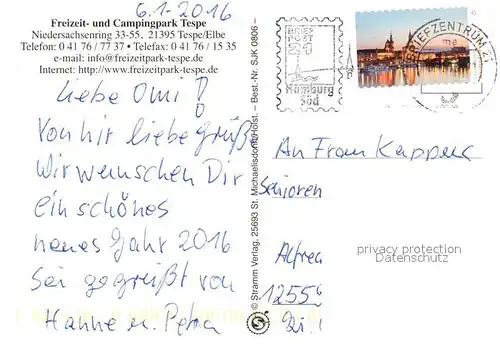 6.1.2016
Freizeit- und Campingpark Tespe
Niedersachsenring 33-55, 21395 Tespe/Elbe
Telefon: 0 41 76 / 77 37 • Telefax: 0 41 76 / 15 35
e-mail: info@freizeitpark-tespe.de
Internet: http://www.freizeitpark-tespe.de
Liebe Omi!
Von hir liebe grüße
Wir wenschen Dir
ein schönes
neues Jahr 2016
Sei gegrüßt von
Hanne u. Petra
© Stramm Verlag, 25693 St. Michaelisdonn/Holst. – Best.-Nr. SJK 0806 –
BRIEF
POST
Hamburg
Süd
BRIEFZENTRUM 21
An Frau
Senioren
Alfred
12559
privacy protection
Datenschutz